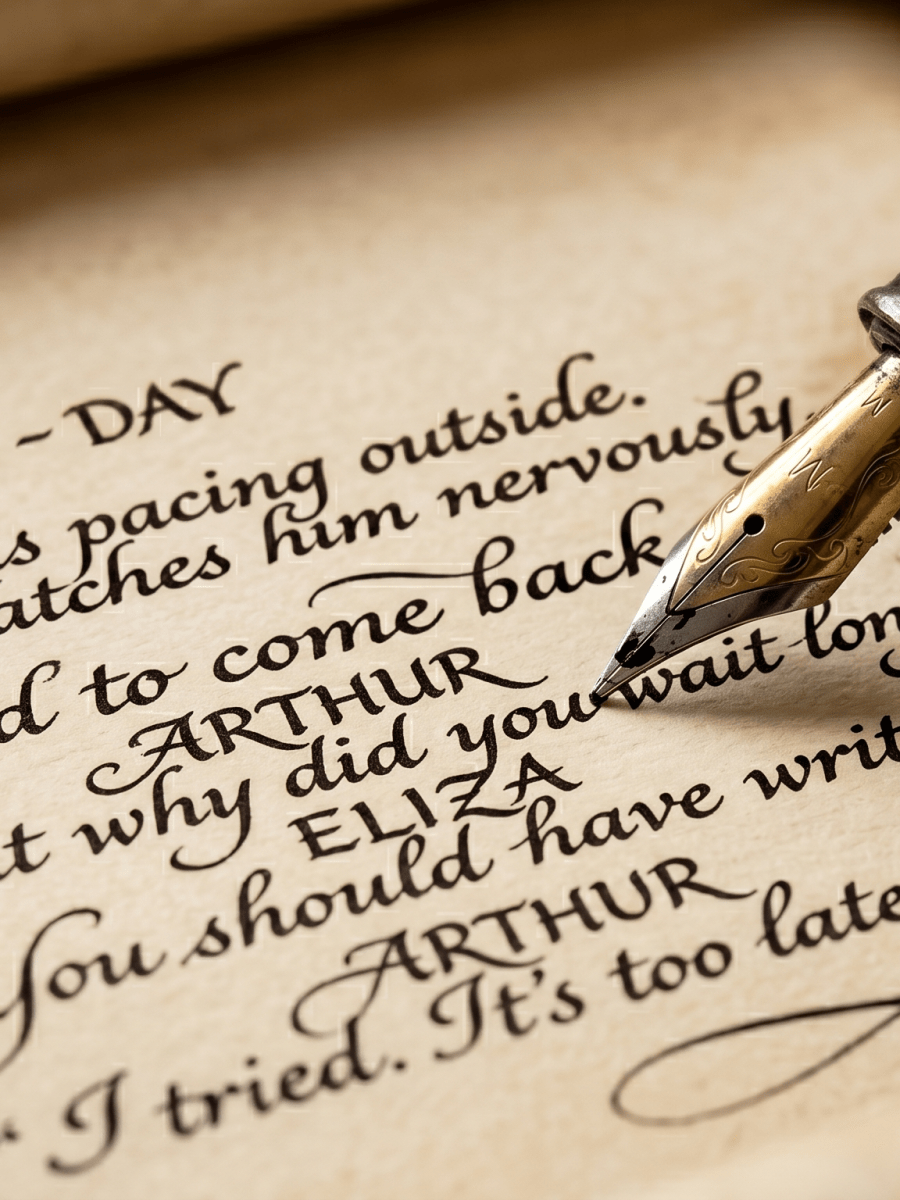 ~ DAY
s pacing outside.
atches him nervously.
d to come back
ARTHUR
t why did you wait lon
ELIZA
You should have writ
ARTHUR
I tried. It's too late